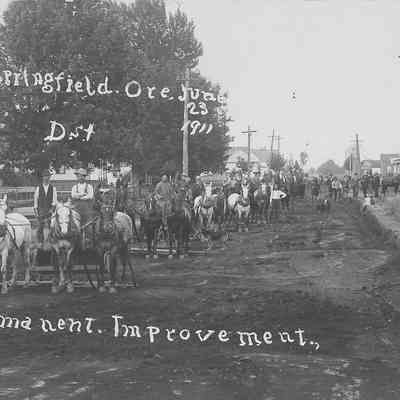 Springfield. Ore. June
23
Dst 1911
manent. Improvement.,